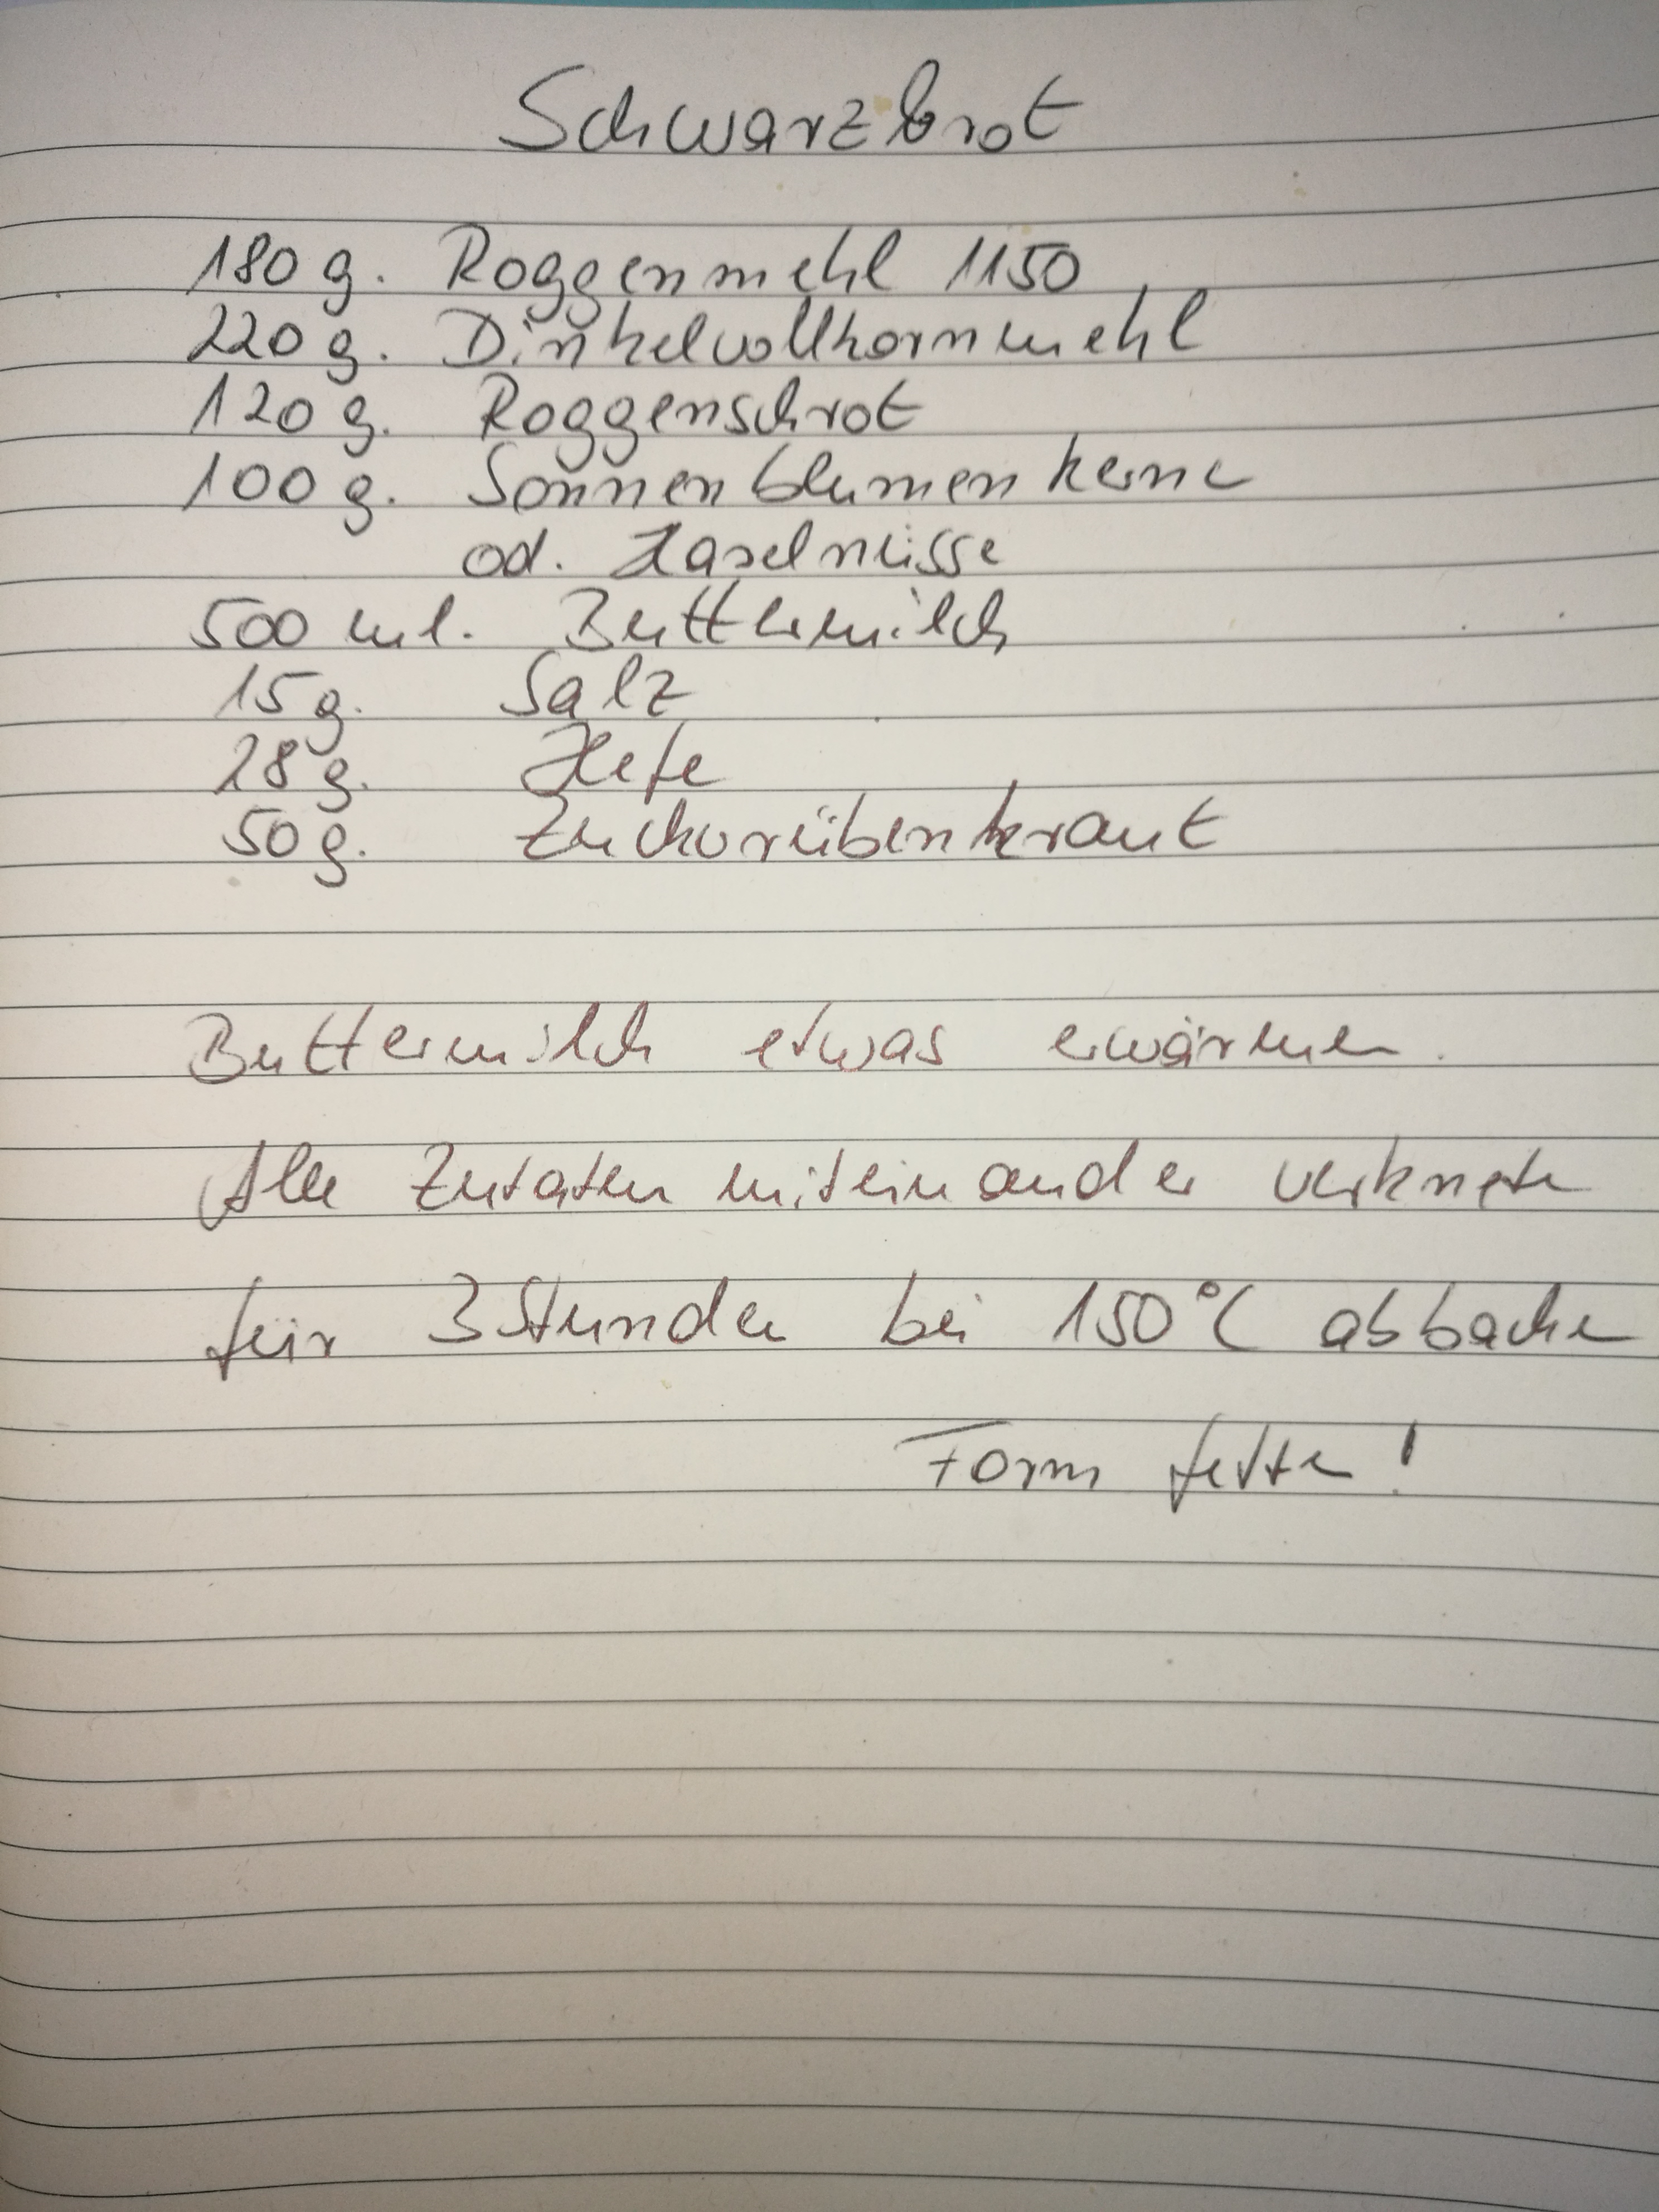 Schwarzbrot
180 g. Roggenmehl 1150
220 g. Dinkelvollkornmehl
120 g. Roggenschrot
100 g. Sonnenblumenkerne
od. Haselnüsse
500 ml. Buttermilch
15 g. Salz
28 g. Hefe
50 g. Zuckerrübenkraut
Buttermilch etwas erwärmen.
Alle Zutaten miteinander verkneten
für 3 Stunden bei 150°C abbacken
Form fetten!